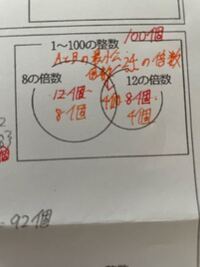 1～100の整数 100個
AとBの最小公
倍数 24の倍数
8の倍数
12の倍数
12個
8個
4個
8個
4個
92個